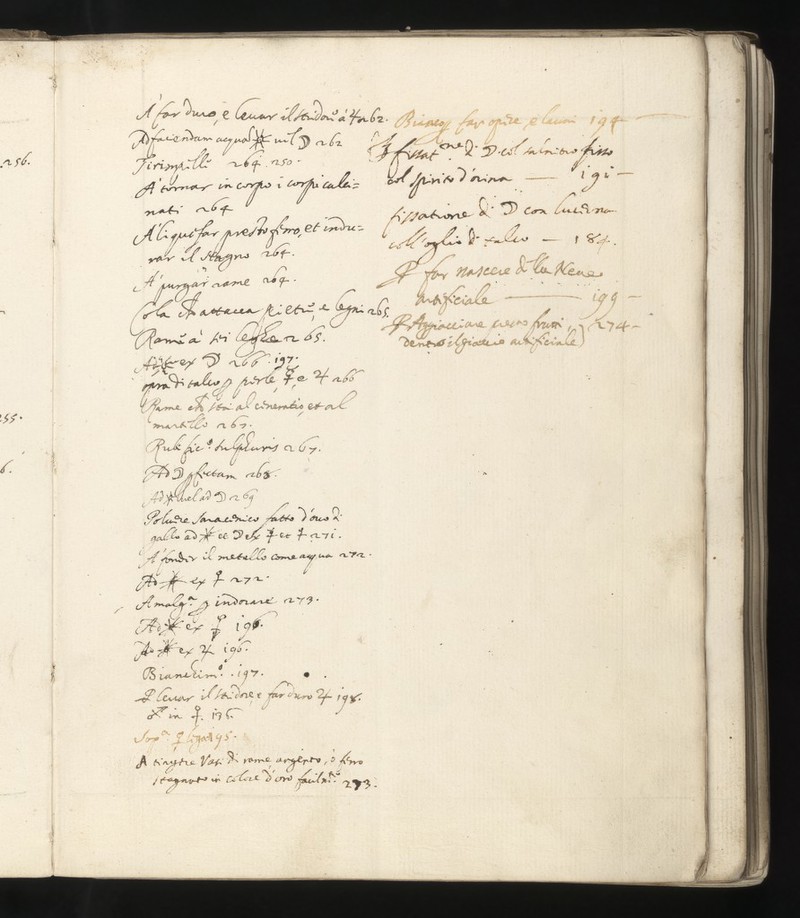 256.
255.
6.
A far duro, e levar il stridor à ♃ 262.
Ad faciendam acquam ☼ vel ☽ 262
264. 250.
A tornar in corpo i corpi calci=
nati 264
A liquefar presto ferro, et indu=
rar il stagno 264.
A purgar rame 264.
Cola che attacca pietre, e legni 265.
Rame à 265.
Ad ☼ ex ☽ 266. 197.
opra di talco p perle, ☿, e ♃ 266
Rame che stia al cineratio, et al
martello 267.
Rubific.o sulphuris 267.
Ad ☽ pfectam 268.
Ad ☼ vel ad ☽ 269
Polvere saracenico fatto d'ovo di
gallo ad ☼ et ☽ ex ☿ et ♀ 271.
A fonder il metallo come acqua 272.
Ad ☼ ex ♀ 272.
Amalg.a p indorare 273.
Ad ☼ ex ☿ 196.
Ad ☼ ex ♃ 196.
Bianchim.o 197.
P levar il stridore, e far duro ♃ 198.
in ♀. 136.
195.
A tingere Vasi di rame, argento, ò ferro
stagnato in colore d'oro facilm.te 273.
far opere, e lavori 194
P fissat.ne di ☽ col salnitro fisso
col spirito d'orina — 191 —
fissatione di ☽ con lucerna
coll'oglio di talco — 184.
P far nascere della Neve
artificiale — 199 —
P Aggiacciare frutti 274 —
dentro il giaccio artificiale